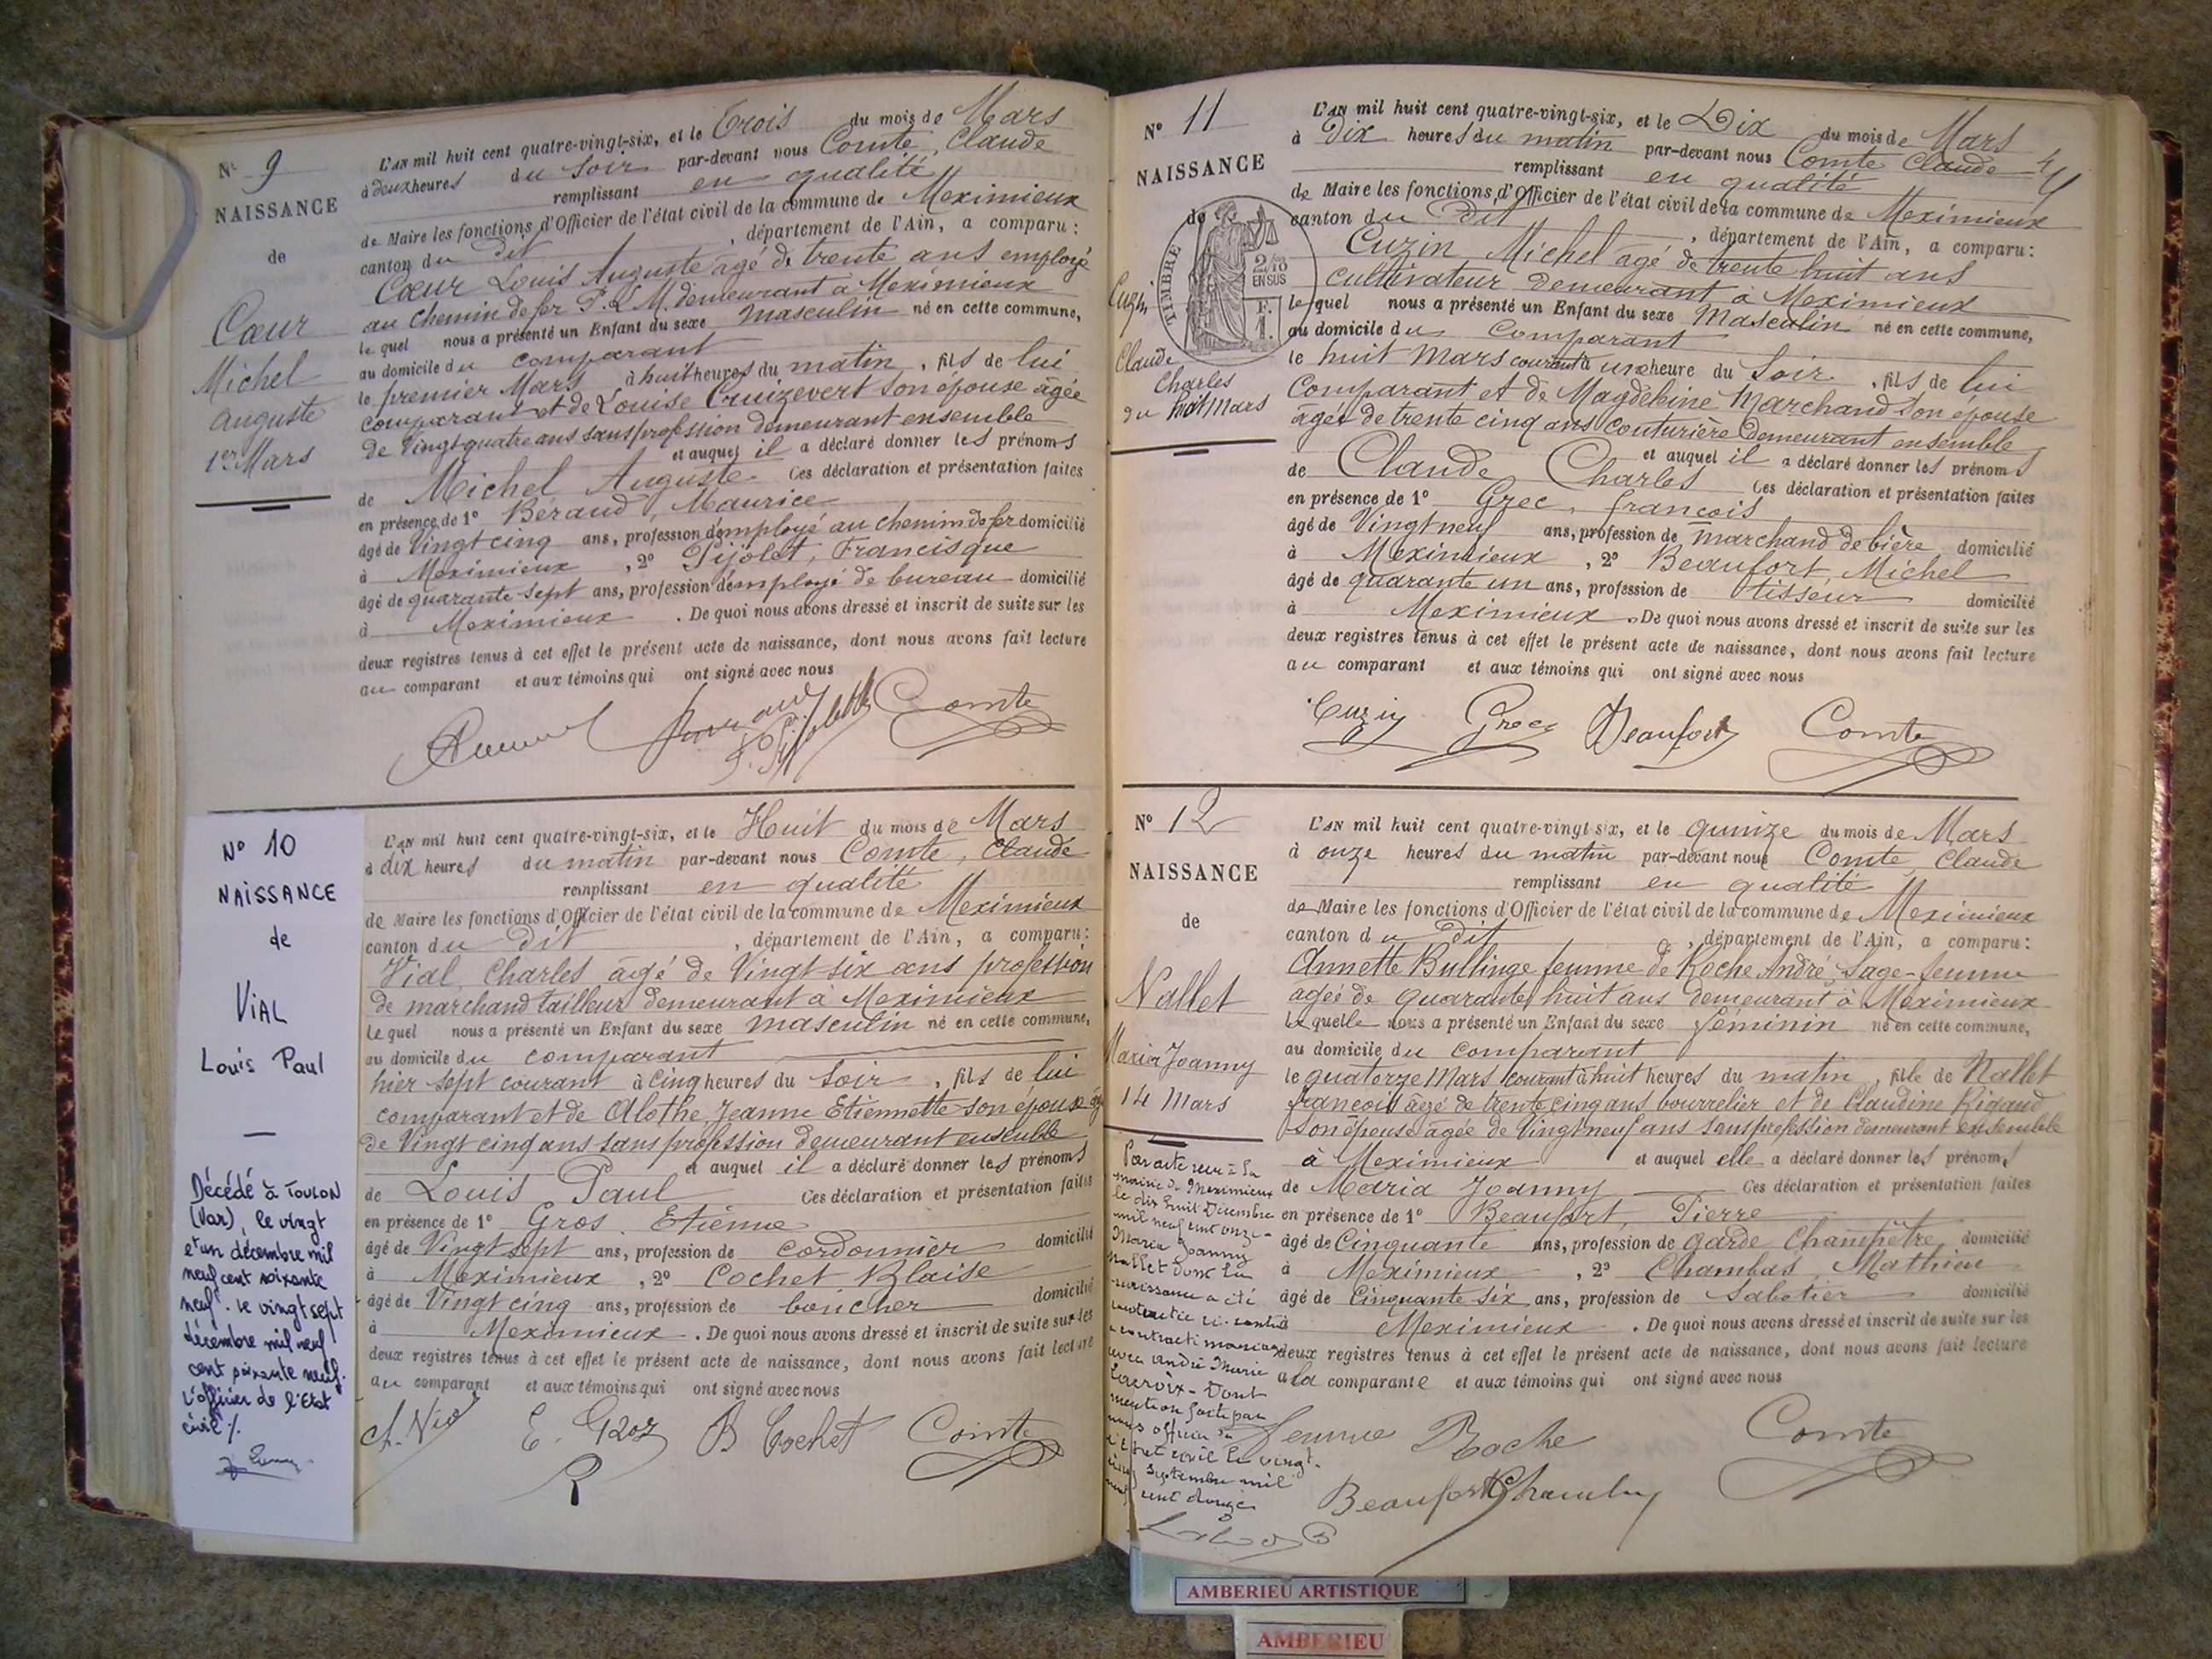 N° 9
NAISSANCE
de
Cœur
Michel
Auguste
1er Mars
L'AN mil huit cent quatre-vingt-six, et le Trois du mois de Mars
à deux heures du soir par-devant nous Comte, Claude
remplissant en qualité
de Maire les fonctions d'Officier de l'état civil de la commune de Meximieux
canton du dit, département de l'Ain, a comparu:
Cœur Louis Auguste âgé de trente ans employé
au chemin de fer P.L.M. demeurant à Meximieux
lequel nous a présenté un Enfant du sexe masculin né en cette commune,
au domicile du comparant
le premier Mars à huit heures du matin, fils de lui
comparant et de Louise Cruizevert son épouse âgée
de Vingt quatre ans sans profession demeurant ensemble
et auquel il a déclaré donner les prénoms
de Michel Auguste Ces déclaration et présentation faites
en présence de 1° Béraud, Maurice
âgé de Vingt cinq ans, profession d'employé au chemin de fer domicilié
à Meximieux, 2° Pijolet, Francisque
âgé de quarante-sept ans, profession d'employé de bureau domicilié
à Meximieux. De quoi nous avons dressé et inscrit de suite sur les
deux registres tenus à cet effet le présent acte de naissance, dont nous avons fait lecture
au comparant et aux témoins qui ont signé avec nous
Comte
N° 10
NAISSANCE
de
VIAL
Louis Paul
Décédé à TOULON
(Var), le vingt
et un décembre mil
neuf cent soixante
neuf. le vingt sept
décembre mil neuf
cent soixante neuf.
L'officier de l'Etat
civil %.
L'AN mil huit cent quatre-vingt-six, et le Huit du mois de Mars
à dix heures du matin par-devant nous Comte, Claude
remplissant en qualité
de Maire les fonctions d'Officier de l'état civil de la commune de Meximieux
canton du dit, département de l'Ain, a comparu:
Vial, Charles âgé de Vingt-six ans profession
de marchand tailleur demeurant à Meximieux
lequel nous a présenté un Enfant du sexe masculin né en cette commune,
au domicile du comparant
hier sept courant à cinq heures du soir, fils de lui
comparant et de Alothe Jeanne Etiennette son épouse
de Vingt cinq ans sans profession demeurant ensemble
et auquel il a déclaré donner les prénoms
de Louis Paul Ces déclaration et présentation faites
en présence de 1° Gros Etienne
âgé de Vingt sept ans, profession de cordonnier domicilié
à Meximieux, 2° Cochet Blaise
âgé de Vingt cinq ans, profession de boucher domicilié
à Meximieux. De quoi nous avons dressé et inscrit de suite sur les
deux registres tenus à cet effet le présent acte de naissance, dont nous avons fait lecture
au comparant et aux témoins qui ont signé avec nous
E. Gros B Cochet Comte
N° 11
NAISSANCE
de
TIMBRE
2/10
EN SUS
F.
1.
Cuzin
Claude
Charles
du huit Mars
L'AN mil huit cent quatre-vingt-six, et le Dix du mois de Mars
à Dix heures du matin par-devant nous Comte Claude
remplissant en qualité
de Maire les fonctions d'Officier de l'état civil de la commune de Meximieux
canton du Dit, département de l'Ain, a comparu:
Cuzin Michel âgé de trente huit ans
cultivateur demeurant à Meximieux
lequel nous a présenté un Enfant du sexe Masculin né en cette commune,
au domicile du comparant
le huit Mars courant à une heure du Soir, fils de lui
comparant et de Magdeleine Marchand son épouse
âgée de trente cinq ans couturière demeurant ensemble
et auquel il a déclaré donner les prénoms
de Claude Charles Ces déclaration et présentation faites
en présence de 1° Grec, francois
âgé de Vingt neuf ans, profession de marchand de bière domicilié
à Meximieux, 2° Beaufort, Michel
âgé de quarante un ans, profession de tisseur domicilié
à Meximieux. De quoi nous avons dressé et inscrit de suite sur les
deux registres tenus à cet effet le présent acte de naissance, dont nous avons fait lecture
au comparant et aux témoins qui ont signé avec nous
Cuzin Grec Beaufort Comte
N° 12
NAISSANCE
de
Nallet
Maria Joanny
14 Mars
Par acte reçu à la
mairie de Meximieux
le dix huit Décembre
mil neuf cent onze
Maria Joanny
Nallet dont la
naissance a été
a contracté mariage
avec André Marie
Lacroix - Dont
mention faite par
nous officier de
l'état civil le vingt
Septembre mil
cent douze
L'AN mil huit cent quatre-vingt-six, et le quinze du mois de Mars
à onze heures du matin par-devant nous Comte, Claude
remplissant en qualité
de Maire les fonctions d'Officier de l'état civil de la commune de Meximieux
canton du dit, département de l'Ain, a comparu:
Annette Bullinge femme de Roche André Sage-femme
agée de quarante huit ans demeurant à Meximieux
laquelle nous a présenté un Enfant du sexe féminin né en cette commune,
au domicile du comparant
le quatorze Mars courant à huit heures du matin, fille de Nallet
francois âgé de trente cinq ans bourrelier et de Claudine Rigaud
son épouse agée de Vingt neuf ans sans profession demeurant ensemble
à Meximieux et auquel elle a déclaré donner les prénoms
de Maria Joanny Ces déclaration et présentation faites
en présence de 1° Beaufort, Pierre
âgé de Cinquante ans, profession de garde Champêtre domicilié
à Meximieux, 2° Chambas, Mathieu
âgé de Cinquante Six ans, profession de Sabotier domicilié
à Meximieux. De quoi nous avons dressé et inscrit de suite sur les
deux registres tenus à cet effet le présent acte de naissance, dont nous avons fait lecture
a la comparante et aux témoins qui ont signé avec nous
femme Roche Comte
Beaufort
AMBERIEU ARTISTIQUE
AMBERIEU